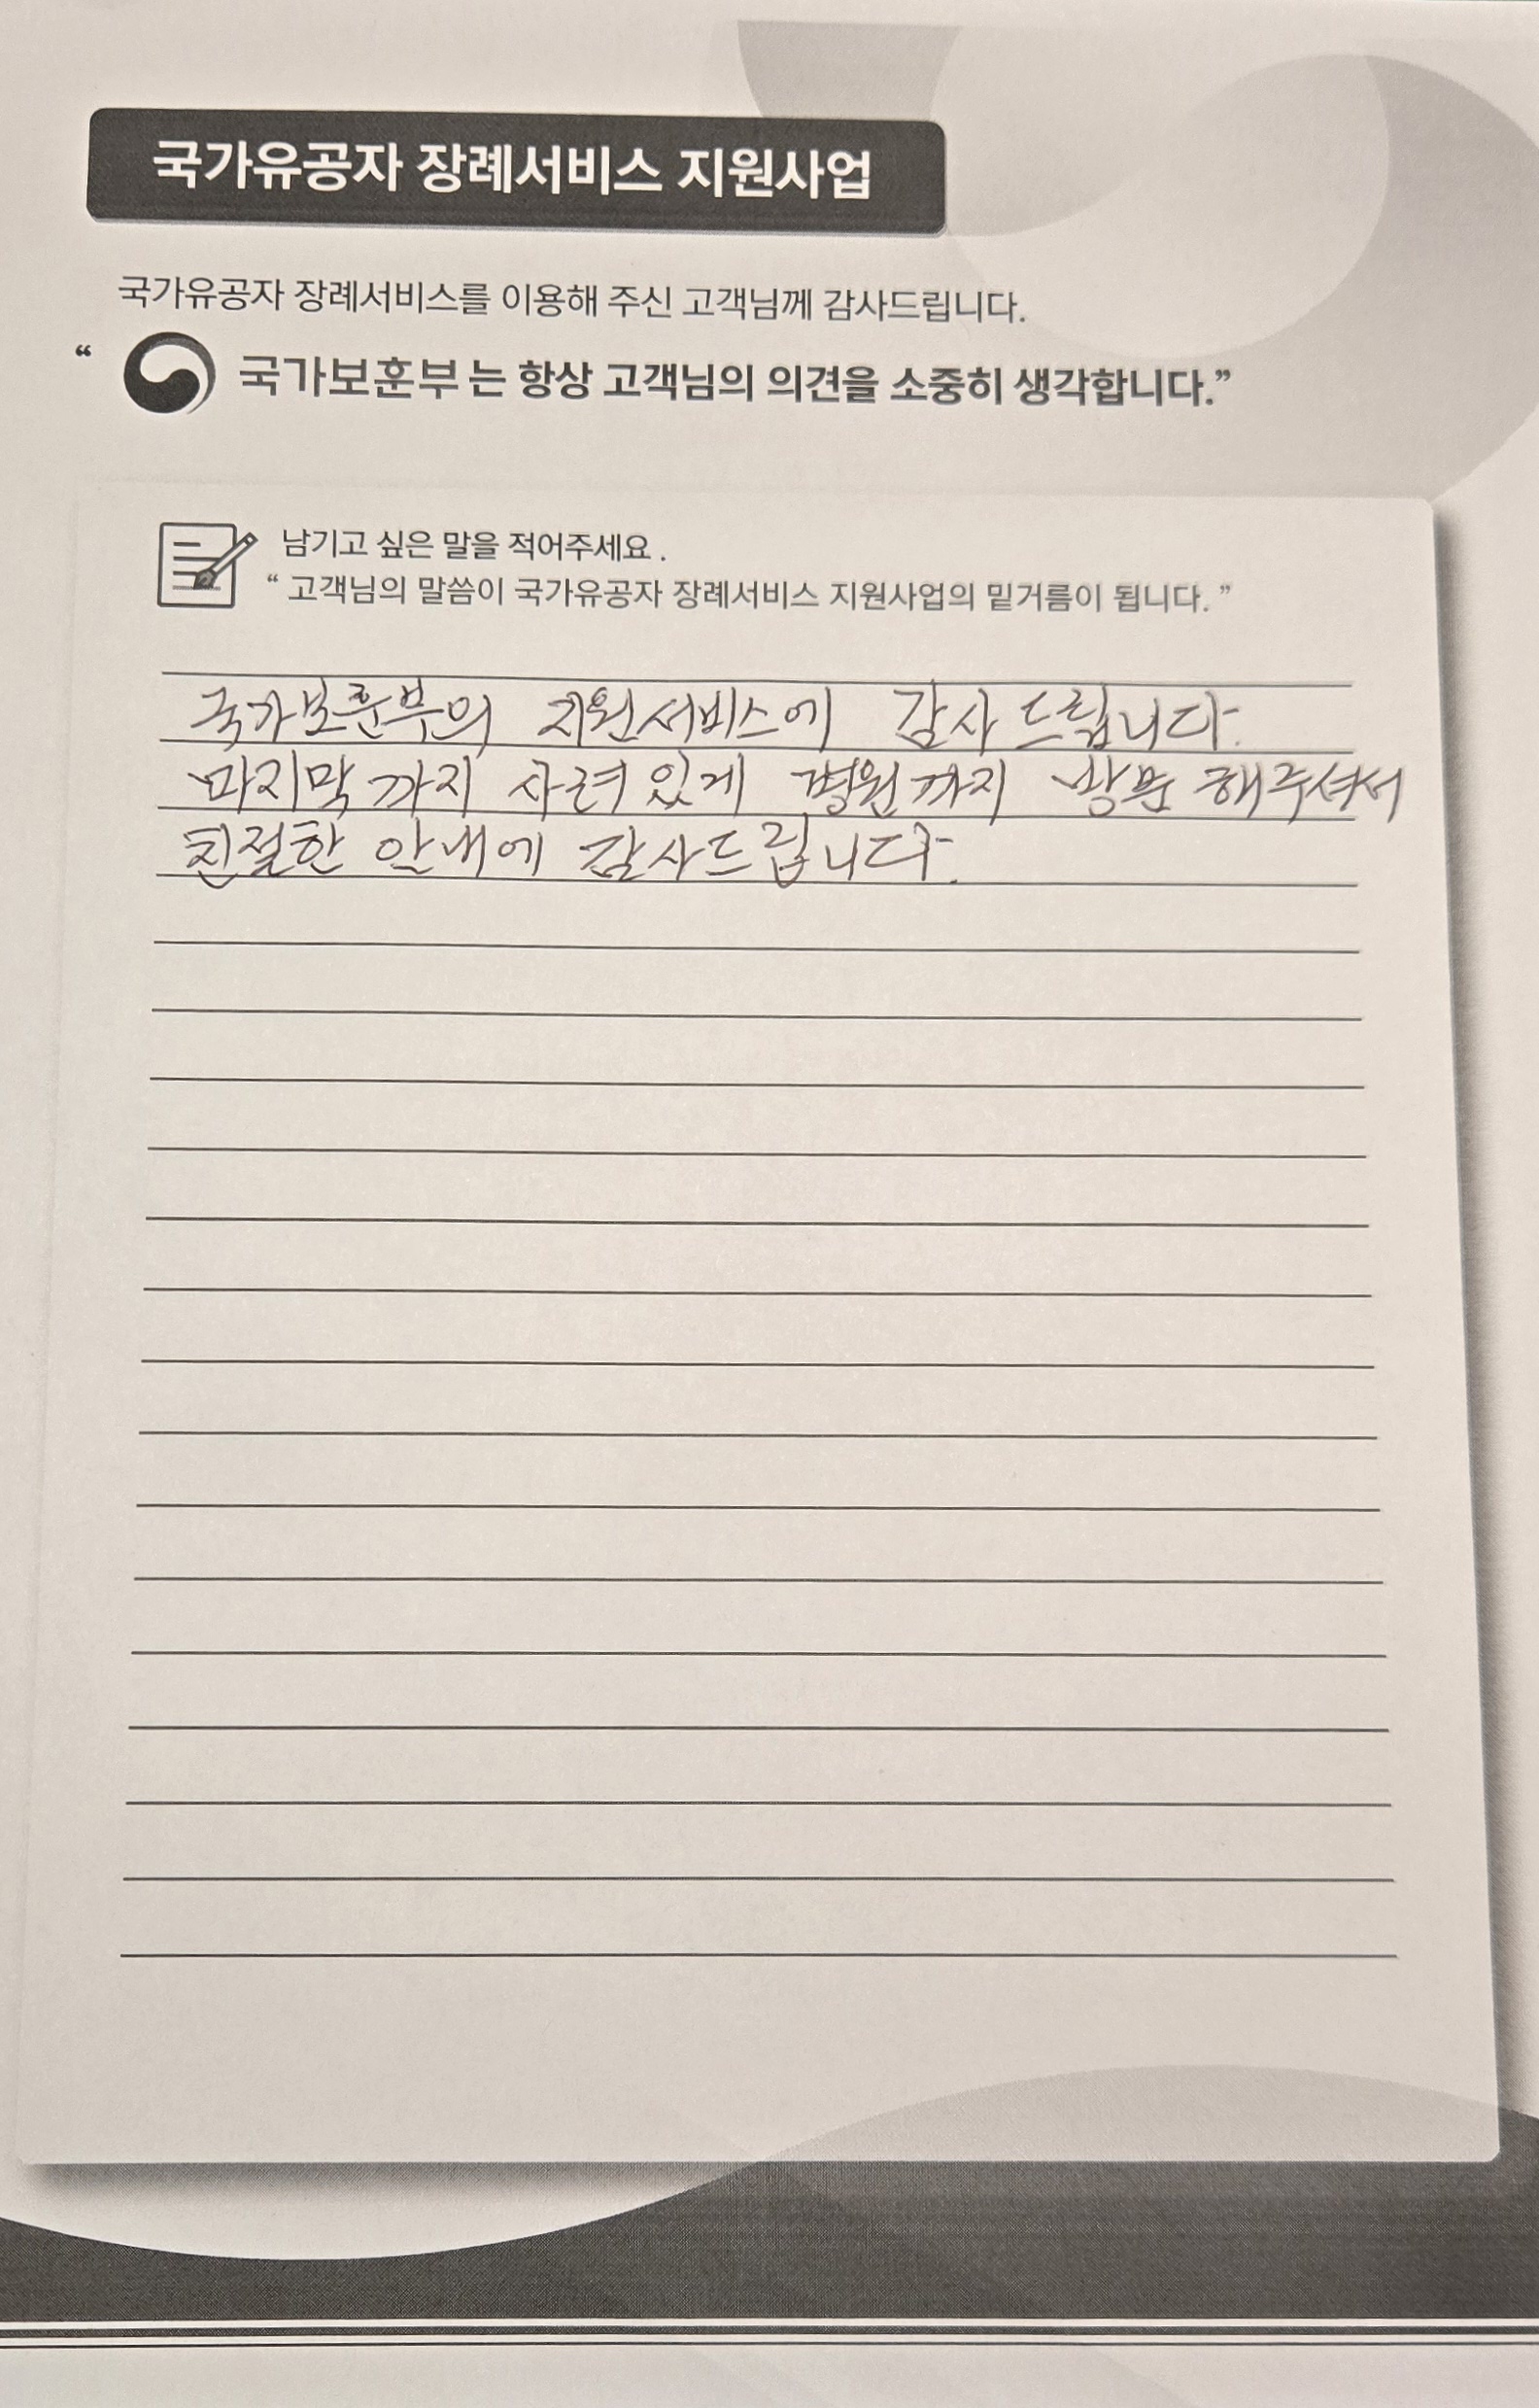 국가유공자 장례서비스 지원사업
국가유공자 장례서비스를 이용해 주신 고객님께 감사드립니다.
“ 국가보훈부는 항상 고객님의 의견을 소중히 생각합니다.”
남기고 싶은 말을 적어주세요.
“ 고객님의 말씀이 국가유공자 장례서비스 지원사업의 밑거름이 됩니다. ”
국가보훈부의 지원서비스에 감사드립니다.
마지막까지 사려있게 병원까지 방문해주셔서
친절한 안내에 감사드립니다.